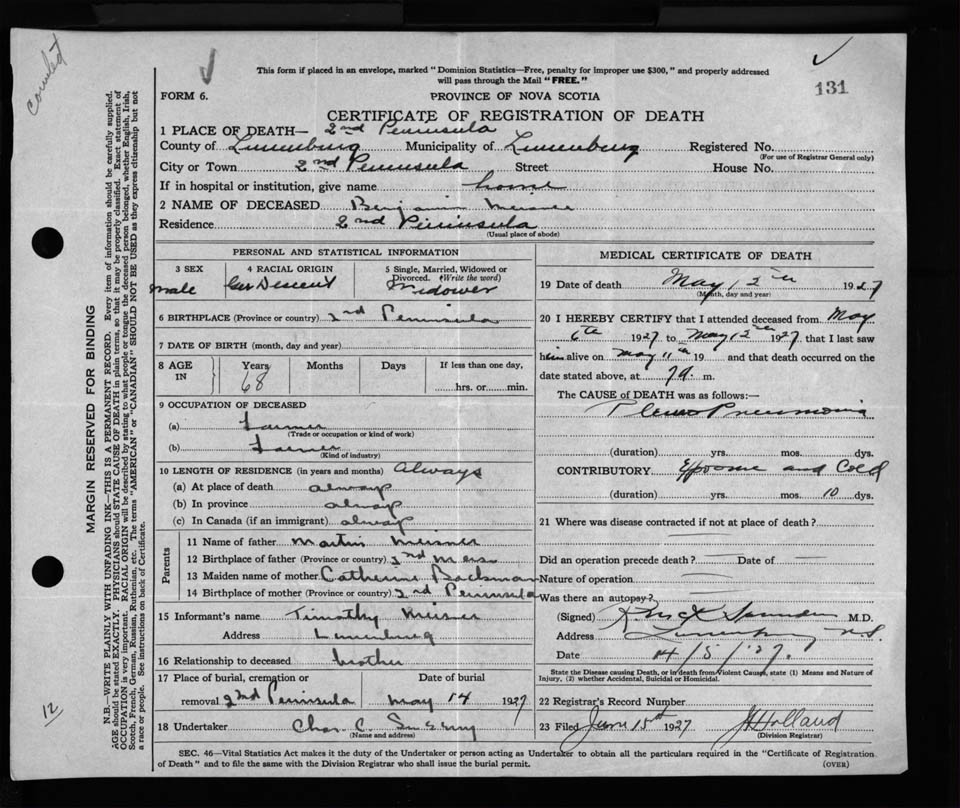 counted
131
This form if placed in an envelope, marked "Dominion Statistics—Free, penalty for improper use $300," and properly addressed
will pass through the Mail "FREE."
FORM 6.
PROVINCE OF NOVA SCOTIA
CERTIFICATE OF REGISTRATION OF DEATH
1 PLACE OF DEATH— 2nd Peninsula
County of Lunenburg Municipality of Lunenburg Registered No.
(For use of Registrar General only)
City or Town 2nd Peninsula Street House No.
If in hospital or institution, give name home
2 NAME OF DECEASED Benjamin Meisner
Residence 2nd Peninsula
(Usual place of abode)
PERSONAL AND STATISTICAL INFORMATION
3 SEX 4 RACIAL ORIGIN 5 Single, Married, Widowed or
Divorced. (Write the word)
Male Ger Descent Widower
6 BIRTHPLACE (Province or country) 2nd Peninsula
7 DATE OF BIRTH (month, day and year)
8 AGE IN Years Months Days If less than one day,
68 hrs. or min.
9 OCCUPATION OF DECEASED
(a) Farmer
(Trade or occupation or kind of work)
(b) Farmer
(Kind of industry)
10 LENGTH OF RESIDENCE (in years and months) Always
(a) At place of death always
(b) In province always
(c) In Canada (if an immigrant) always
Parents
11 Name of father Martin Meisner
12 Birthplace of father (Province or country)
13 Maiden name of mother Catherine Backman
14 Birthplace of mother (Province or country) 2nd Peninsula
15 Informant's name Timothy Meisner
Address Lunenburg
16 Relationship to deceased brother
17 Place of burial, cremation or Date of burial
removal 2nd Peninsula May 14 1927
18 Undertaker Chas. C.
(Name and address)
MEDICAL CERTIFICATE OF DEATH
19 Date of death May 12th 1927
(Month, day and year)
20 I HEREBY CERTIFY that I attended deceased from May
6th 1927 to May 12th 1927, that I last saw
him alive on May 11th 19 and that death occurred on
the date stated above, at 7 a. m.
The CAUSE of DEATH was as follows:—
Pleuro Pneumonia
(duration) yrs. mos. dys.
CONTRIBUTORY Exposure and Cold
(duration) yrs. mos. 10 dys.
21 Where was disease contracted if not at place of death?
Did an operation precede death? Date of
Nature of operation
Was there an autopsy?
(Signed) M.D.
Address Lunenburg N.S.
Date 14/5/27.
State the Disease causing Death, or in death from Violent Causes, state (1) Means and Nature of
Injury, (2) whether Accidental, Suicidal or Homicidal.
22 Registrar's Record Number
23 Filed June 15th 1927 Holland
(Division Registrar)
SEC. 46—Vital Statistics Act makes it the duty of the Undertaker or person acting as Undertaker to obtain all the particulars required in the "Certificate of Registration
of Death" and to file the same with the Division Registrar who shall issue the burial permit. (OVER)
MARGIN RESERVED FOR BINDING
N.B.—WRITE PLAINLY WITH UNFADING INK—THIS IS A PERMANENT RECORD. Every item of information should be carefully supplied.
AGE should be stated EXACTLY. PHYSICIANS should STATE CAUSE OF DEATH in plain terms, so that it may be properly classified. Exact statement of
OCCUPATION is very important. RACIAL ORIGIN will be described by stating to what people or tongue the deceased person belonged, whether English, Irish,
Scotch, French, German, Russian, Ruthenian, etc. The terms "AMERICAN" or "CANADIAN" SHOULD NOT BE USED as they express citizenship but not
a race or people. See instructions on back of Certificate.
12